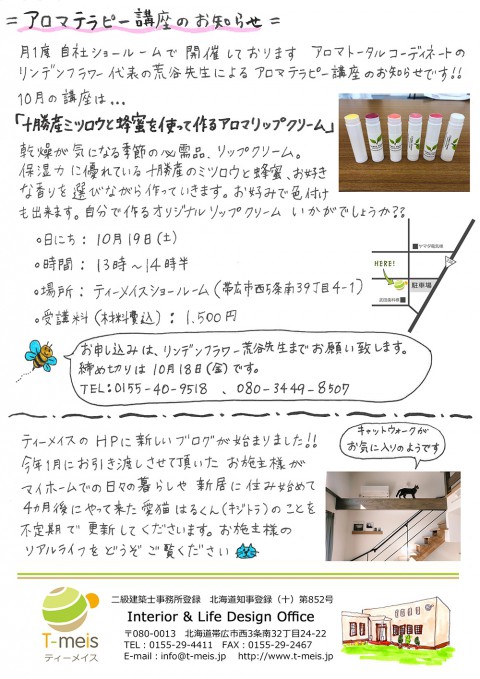 = アロマテラピー講座のお知らせ =
月1度 自社ショールームで 開催しております アロマトータルコーディネートの
リンデンフラワー 代表の荒谷先生による アロマテラピー講座のお知らせです!!
10月の講座は...
「十勝産ミツロウと蜂蜜を使って作るアロマリップクリーム」
乾燥が気になる季節の必需品、リップクリーム。
保湿力に優れている十勝産のミツロウと蜂蜜、お好き
な香りを選びながら作っていきます。お好みで色付け
も出来ます。自分で作るオリジナルリップクリーム いかがでしょうか??
○日にち: 10月19日(土)
○時間: 13時～14時半
○場所: ティーメイスショールーム(帯広市西5条南39丁目4-1)
○受講料(材料費込): 1,500円
ヤマダ電器
HERE!
駐車場
お申し込みは、リンデンフラワー荒谷先生までお願い致します。
締め切りは 10月18日(金)です。
TEL:0155-40-9518 、080-3449-8507
ティーメイスの HPに新しいブログが始まりました!!
今年1月にお引き渡しさせて頂いた お施主様が
マイホームでの日々の暮らしや 新居に住み始めて
4カ月後にやって来た 愛猫 はるくん(キジトラ)のことを
不定期で 更新してくださいます。お施主様の
リアルライフを どうぞ ご覧ください
キャットウォークが
お気に入りのようです
T-meis
ティーメイス
二級建築士事務所登録 北海道知事登録(十)第852号
Interior & Life Design Office
〒080-0013 北海道帯広市西3条南32丁目24-22
TEL:0155-29-4411 FAX:0155-29-2467
E-mail:info@t-meis.jp http://www.t-meis.jp